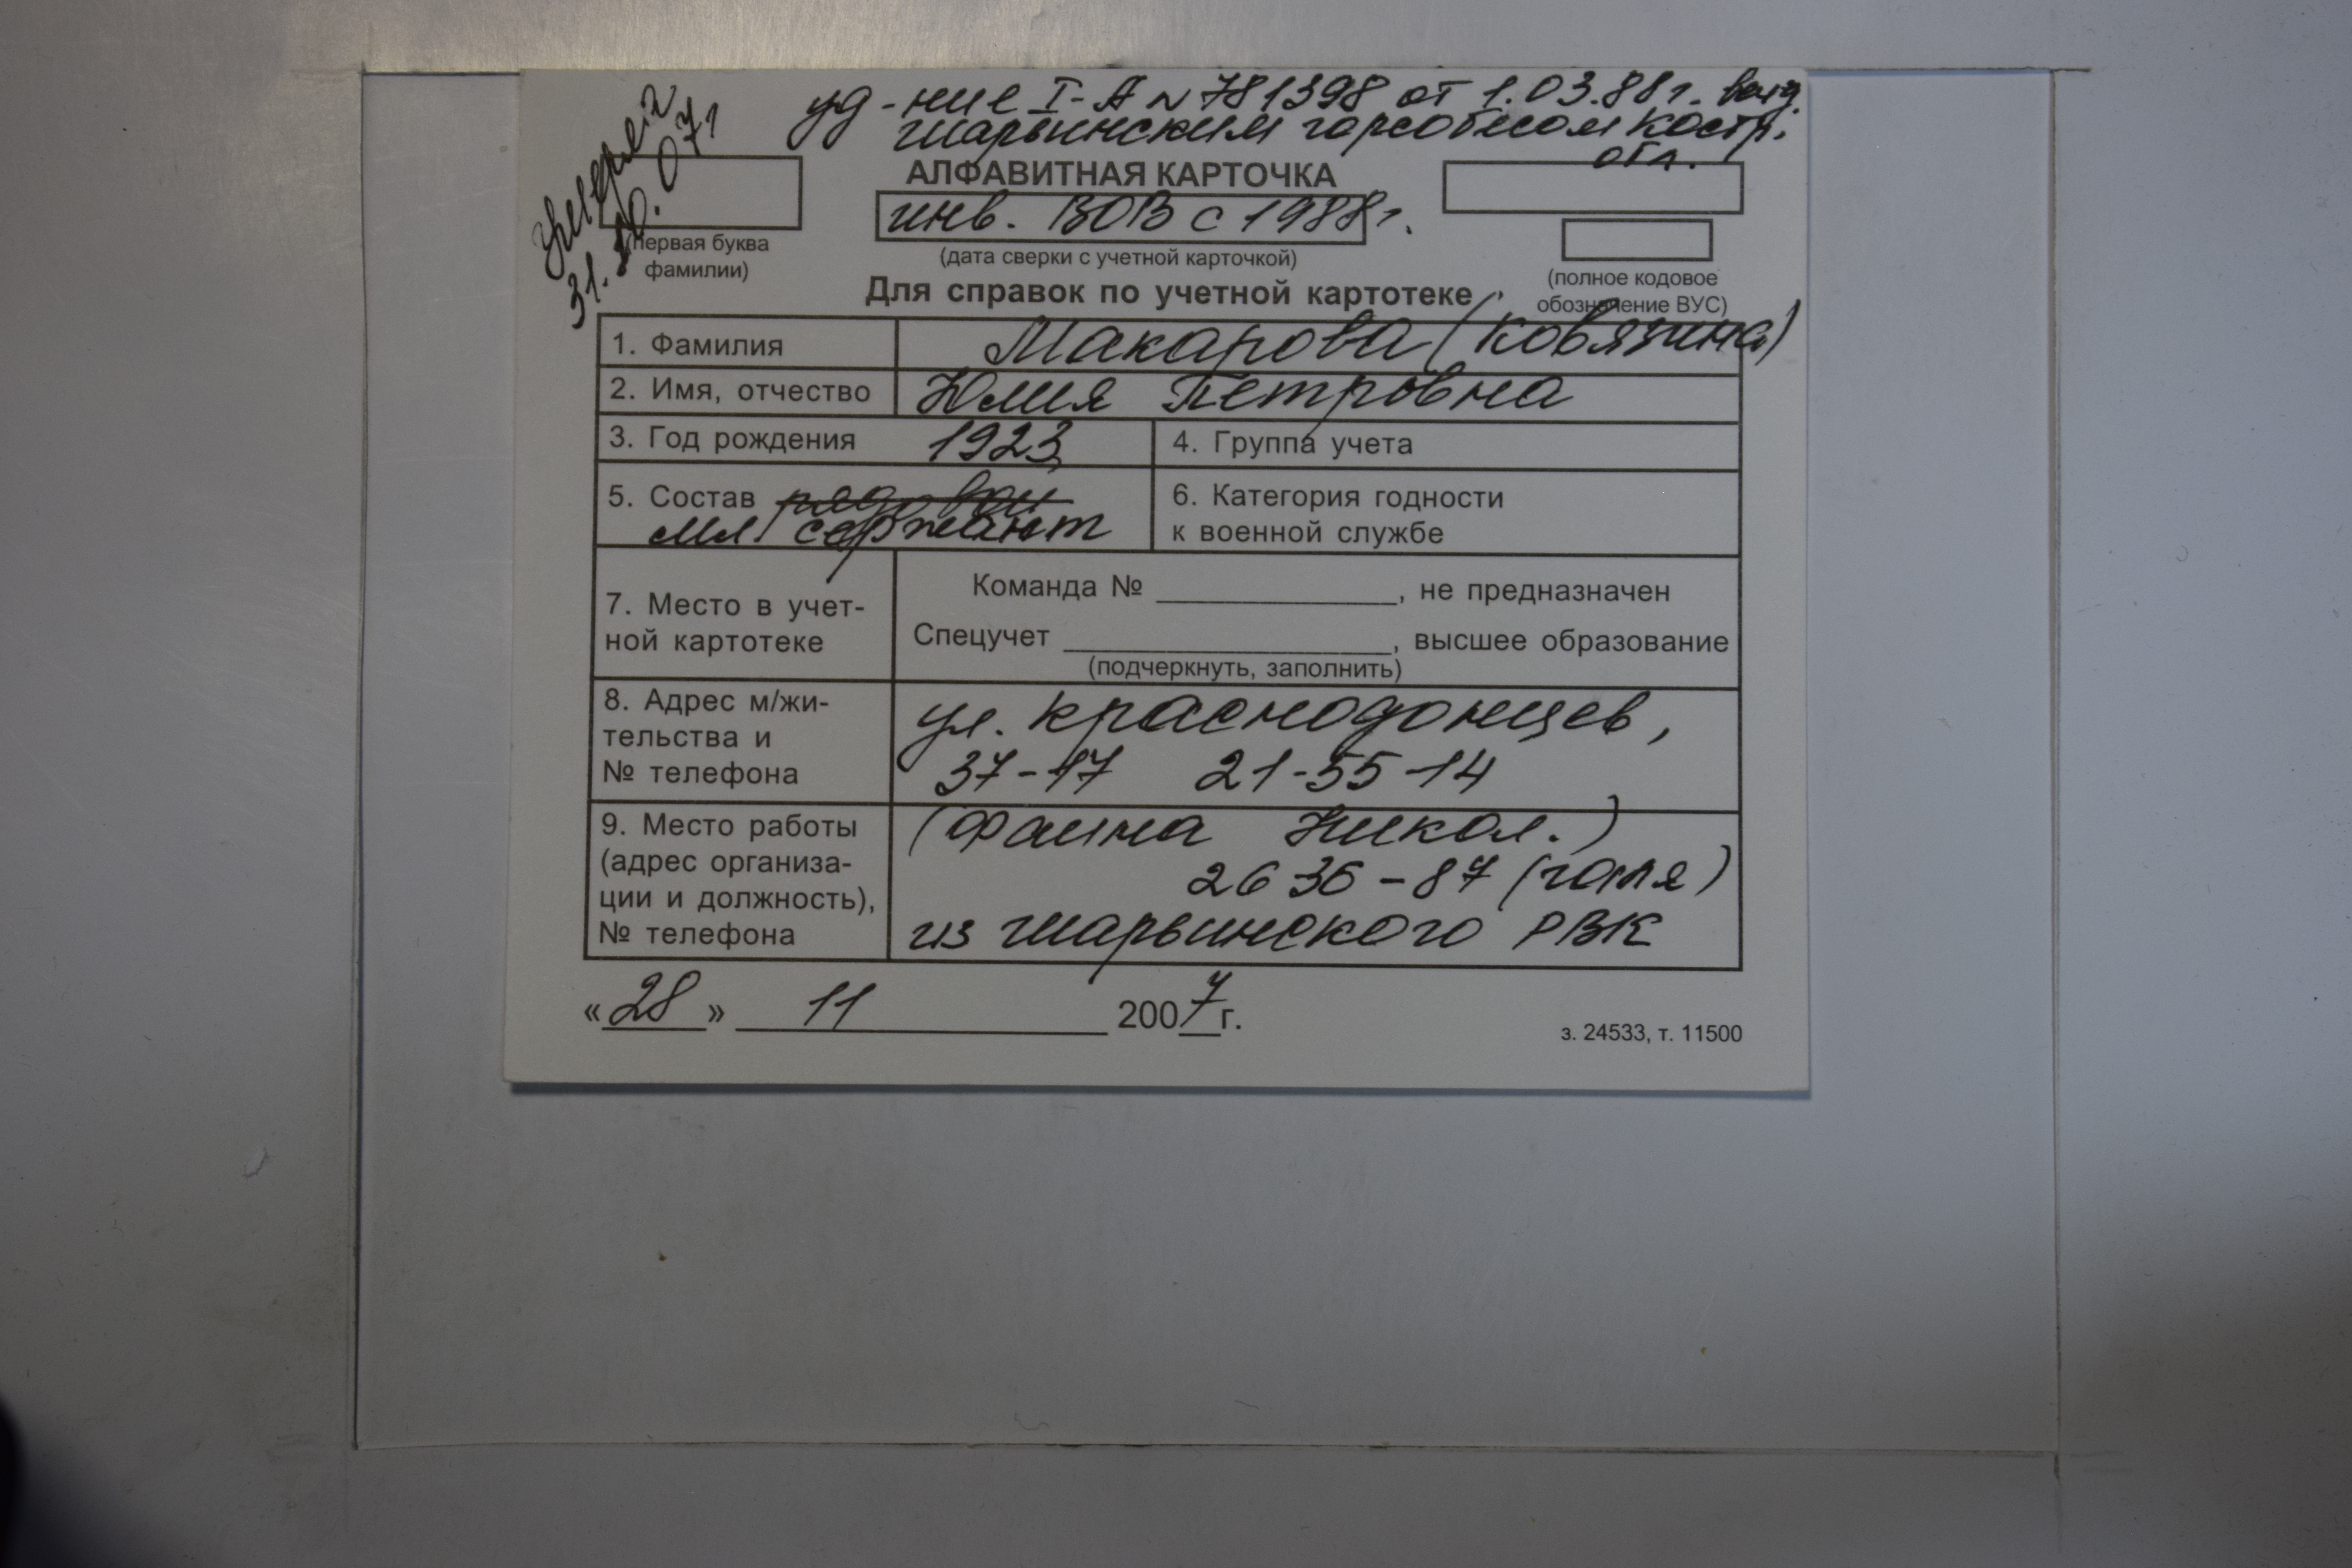 уд-ние I-А № 781398 от 1.03.88г. выд.
шарьинским горсобесом Костр.
обл.
умерла
31.10.07г
АЛФАВИТНАЯ КАРТОЧКА
инв. ВОВ с 1988г.
(первая буква
фамилии)
(дата сверки с учетной карточкой)
(полное кодовое
обозначение ВУС)
Для справок по учетной картотеке
1. Фамилия Макарова (Ковязина)
2. Имя, отчество Юлия Петровна
3. Год рождения 1923 4. Группа учета
5. Состав рядовой 6. Категория годности
мл. сержант к военной службе
Команда № ______, не предназначен
7. Место в учет-
ной картотеке
Спецучет ______, высшее образование
(подчеркнуть, заполнить)
8. Адрес м/жи-
тельства и
№ телефона
ул. Краснодонцев,
37-17 21-55-14
9. Место работы
(адрес организа-
ции и должность),
№ телефона
(Фаина Никол.)
26 36-87 (Галя)
из шарьинского РВК
«28» 11 2007г.
з. 24533, т. 11500